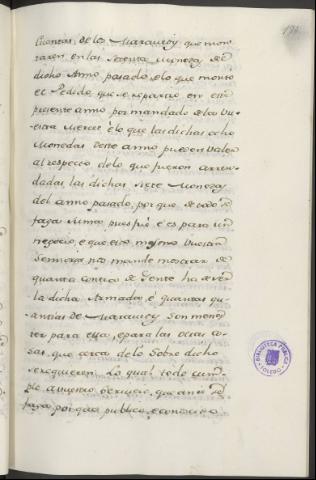 quantias, de los Maravedis que mon
taren en las setenta Monedas del
dicho Anno pasado, de lo que monto
el Pedido, que se repartio en este
presente anno por mandado de la Vu
estra Merced é lo que las dichas ocho
Monedas deste anno pueden Valer
al respecto de lo que fueron arren
dadas las dichas siete Monedas
del anno pasado, por que de todo se
faga suma pues fué é es para un
negocio, é que esto mismo Vuestra
Sennoria nos mande mostrar de
quanta Gente ha de ser
la dicha Armada, é quantas qu
antias de Maravedis son menes
ter para ella, e para las otras co
sas, que cerca dello sobre dicho
se requieren. Lo qual todo cum
ple a vuestro servicio, que ansi se
faga, porque publico, e conocido
BIBLIOTECA PUBLICA
TOLEDO